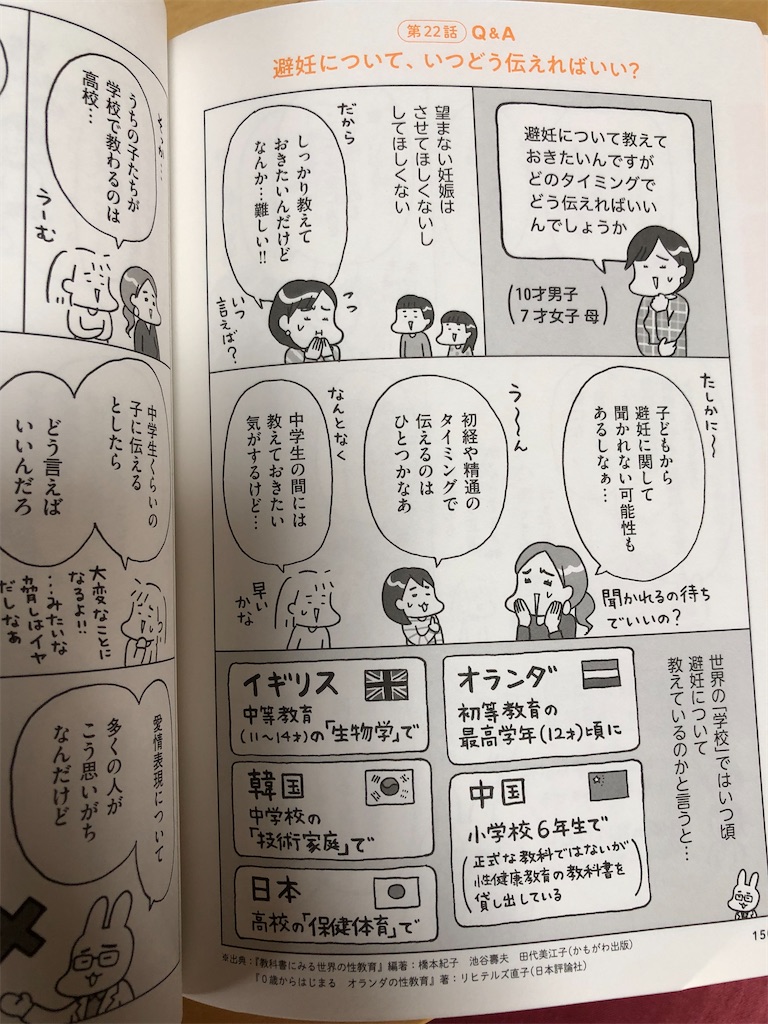 第22話 Q&A
避妊について、いつどう伝えればいい?
避妊について教えて
おきたいんですが
どのタイミングで
どう伝えればいい
んでしょうか
(10才男子
7才女子 母)
望まない妊娠は
させてほしくないし
してほしくない
だから
しっかり教えて
おきたいんだけど
なんか…難しい!!
いつ
言えば?
たしかに〜
子どもから
避妊に関して
聞かれない可能性も
あるしなぁ…
聞かれるの待ち
でいいの?
う〜〜ん
初経や精通の
タイミングで
伝えるのは
ひとつかなあ
なんとなく
中学生の間には
教えておきたい
気がするけど…
早い
かな
世界の「学校」ではいつ頃
避妊について
教えているのかと言うと…
オランダ
初等教育の
最高学年(12才)頃に
イギリス
中等教育
(11〜14才)の「生物学」で
中国
小学校6年生で
(正式な教科ではないが
性健康教育の教科書を
貸し出している)
韓国
中学校の
「技術家庭」で
日本
高校の「保健体育」で
※出典:『教科書にみる世界の性教育』編著:橋本紀子 池谷壽夫 田代美江子(かもがわ出版)
『0歳からはじまる オランダの性教育』著:リヒテルズ直子(日本評論社)
うちの子たちが
学校で教わるのは
高校…
うーむ
中学生くらいの
子に伝える
としたら
どう言えば
いいんだろ
大変なことに
なるよ!!
…みたいな
脅しはイヤ
だしなぁ
愛情表現について
多くの人が
こう思いがち
なんだけど